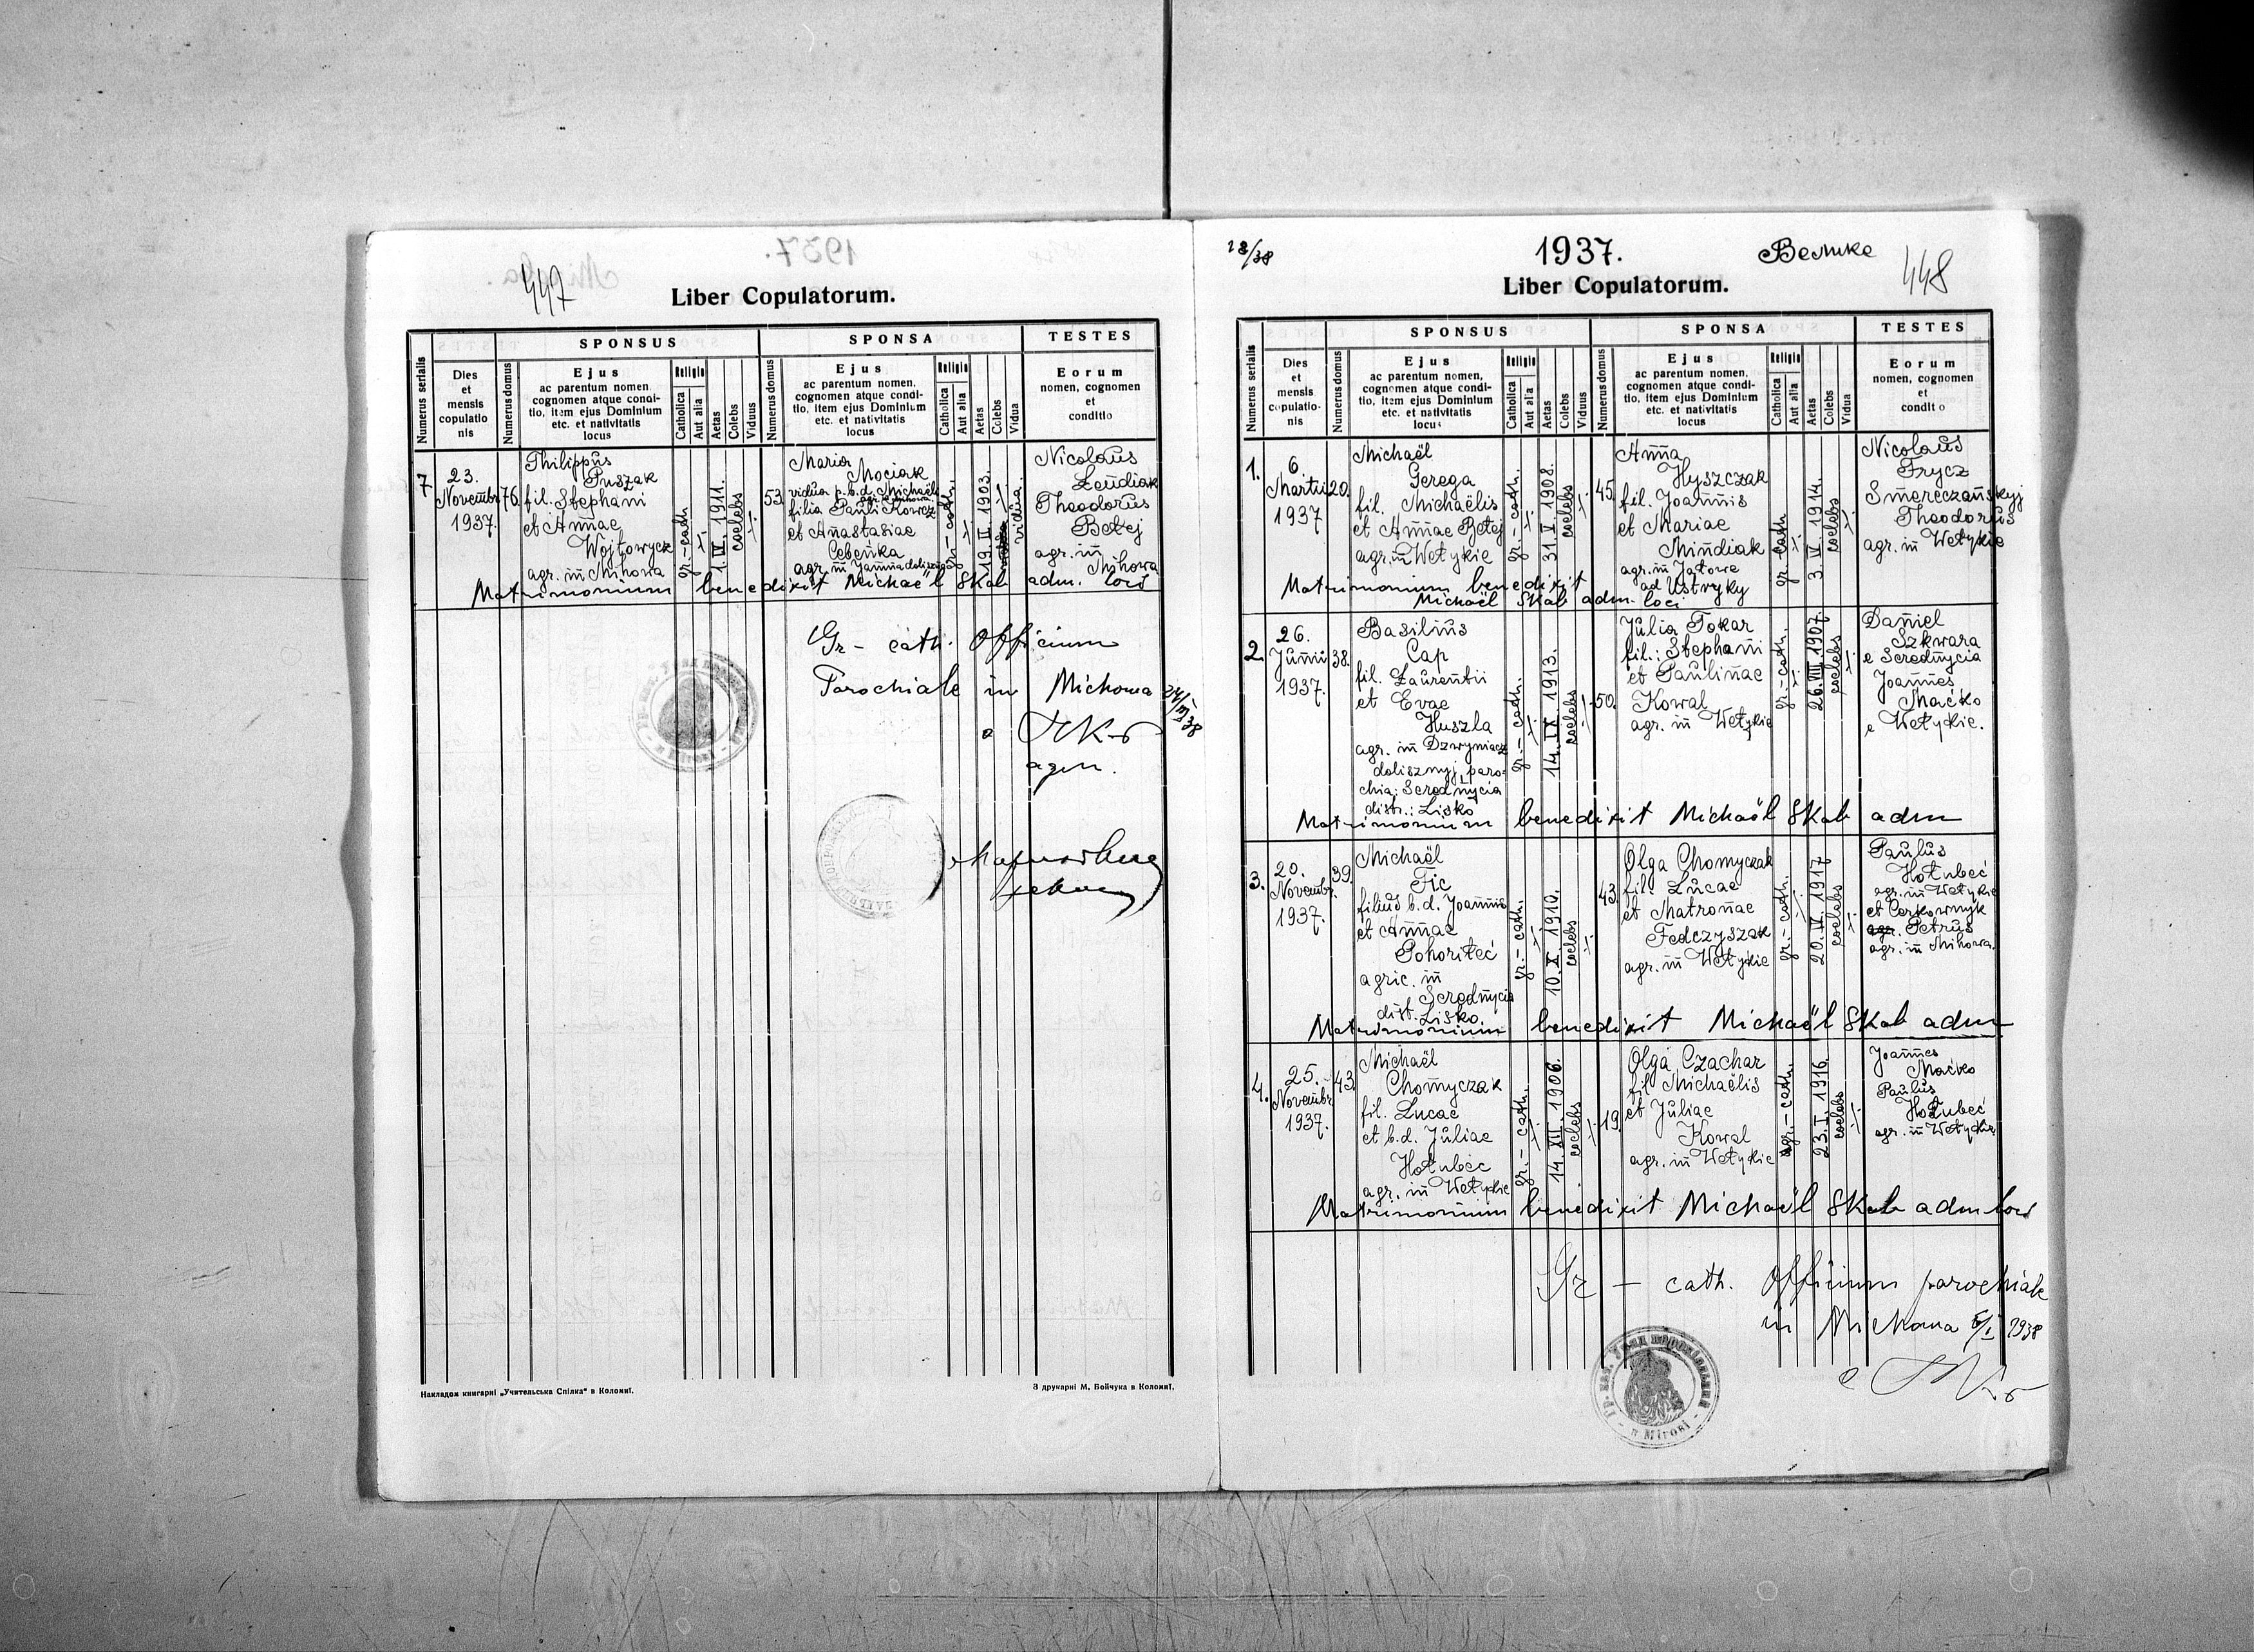 447
Liber Copulatorum.
Numerus serialis
Dies
et
mensis
copulatio
nis
SPONSUS
Numerus domus
Ejus
ac parentum nomen,
cognomen atque condi-
tio, item ejus Dominium
etc. et nativitatis
locus
Religio
Catholica
Aut alia
Aetas
Colebs
Viduus
SPONSA
Numerus domus
Ejus
ac parentum nomen,
cognomen atque condi-
tio, item ejus Dominium
etc. et nativitatis
locus
Religio
Catholica
Aut alia
Aetas
Colebs
Vidua
TESTES
Eorum
nomen, cognomen
et
conditio
7
23.
Novembr
1937.
76.
Philippus
Puszak
fil. Stephani
et Annae
Wojtowycz
agr. in Mihowa
gr.-cath
1. IV. 1911.
coelebs
53.
Maria
Mociak
vidua p. b. d. Michaëli
agr. in Mihowa
filia Pauli Kowcz
et Anastasiae
Cebeńka
gr.-cath.
19. II. 1903.
vidua
Nicolaus
Lendiak
Theodorus
Betej
agr. in
Mihowa
Matrimonium benedixit Michaël Skab adm. loci
Gr - cath. Officium
Parochiale in Michowa
Накладом книгарні „Учительська Спілка" в Коломиї.
З друкарні М. Бойчука в Коломиї.
28/38
1937.
Велике
448
Liber Copulatorum.
Numerus serialis
Dies
et
mensis
copulatio-
nis
SPONSUS
Numerus domus
Ejus
ac parentum nomen,
cognomen atque condi-
tio, item ejus Dominium
etc. et nativitatis
locus
Religio
Catholica
Aut alia
Aetas
Colebs
Viduus
SPONSA
Numerus domus
Ejus
ac parentum nomen,
cognomen atque condi-
tio, item ejus Dominium
etc. et nativitatis
locus
Religio
Catholica
Aut alia
Aetas
Colebs
Vidua
TESTES
Eorum
nomen, cognomen
et
conditio
1.
6.
Martii
1937
20.
Michaël
Gerega
fil. Michaëlis
et Annae Betej
agr. in Wełykie
gr.-cath.
31. X. 1908.
coelebs
45.
Anna
Hyszczak
fil. Joannis
et Mariae
Mindiak
agr. in Jałowe
ad Ustryky
gr.-cath
3. IV. 1914.
coelebs
Nicolaus
Frycz
Smereczańskyj
Theodorus
agr. in Wełykie
Matrimonium benedixit
Michaël Skab adm. loci
2.
26.
Junii
1937.
38.
Basilius
Cap
fil. Laurentii
et Evae
Huszla
agr. in Dzwyniacz
dolisznyj, paro-
chia: Serednycia
distr.: Lisko
gr.-cath.
14. IX. 1913.
coelebs
50.
Julia Tokar
fil.: Stephani
et Paulinae
Kowal
agr. in Wełykie
gr.-cath.
26. III. 1907.
coelebs
Daniel
Szkwara
e Serednycia
Joannes
Maćko
e Wełykie.
Matrimonium benedixit Michaël Skab adm
3.
20.
Novembr.
1937.
39.
Michaël
Fic
filius b. d. Joannis
et Annae
Pohorileć
agric. in
Serednycia
dist. Lisko.
gr.-cath.
10. X. 1910.
coelebs
43.
Olga Chomyczak
fil. Lucae
et Matronae
Fedczyszak
agr. in Wełykie
gr.-cath.
20. IV. 1917
coelebs
Paulus
Hołubeć
agr. in Wełykie
et Cerkownyk
agr. Petrus
agr. in Mihowa.
Matrimonium benedixit Michaël Skab adm
4.
25.
Novembr
1937.
43.
Michaël
Chomyczak
fil. Lucae
et b. d. Juliae
Hołubeć
agr. in Wełykie
gr.-cath.
14. XII. 1906.
coelebs
19.
Olga Czachar
fil Michaëlis
et Juliae
Kowal
agr. in Wełykie
gr.-cath.
23. I. 1916.
coelebs
Joannes
Maćko
Paulus
Hołubeć
agr. in Wełykie
Matrimonium benedixit Michaël Skab adm loci
Gr - cath. Officium parochiale
in Michowa 5/I 1938